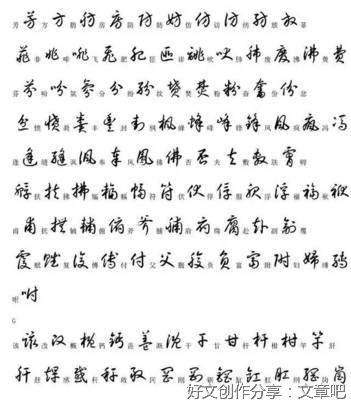 芳 方 肪 房 防 妨 仿 访 纺 放 菲
非 啡 飞 肥 匪 诽 吠 肺 废 沸 费
芬 吩 氛 分 纷 坟 焚 粉 奋 份 忿
愤 粪 丰 封 枫 蜂 峰 锋 风 疯 冯
逢 缝 讽 奉 凤 佛 否 夫 敷 肤
孵 扶 拂 辐 幅 符 伏 俘 服 浮 福 袱
甫 抚 辅 俯 斧 脯 府 腐 赴 副 覆
赋 复 傅 付 父 腹 负 富 附 妇 缚
咐
G
该 改 概 钙 盖 溉 干 甘 杆 柑 竿 肝
赶 感 秆 敢 冈 刚 钢 缸 肛 纲 岗
好文创作分享：文章吧